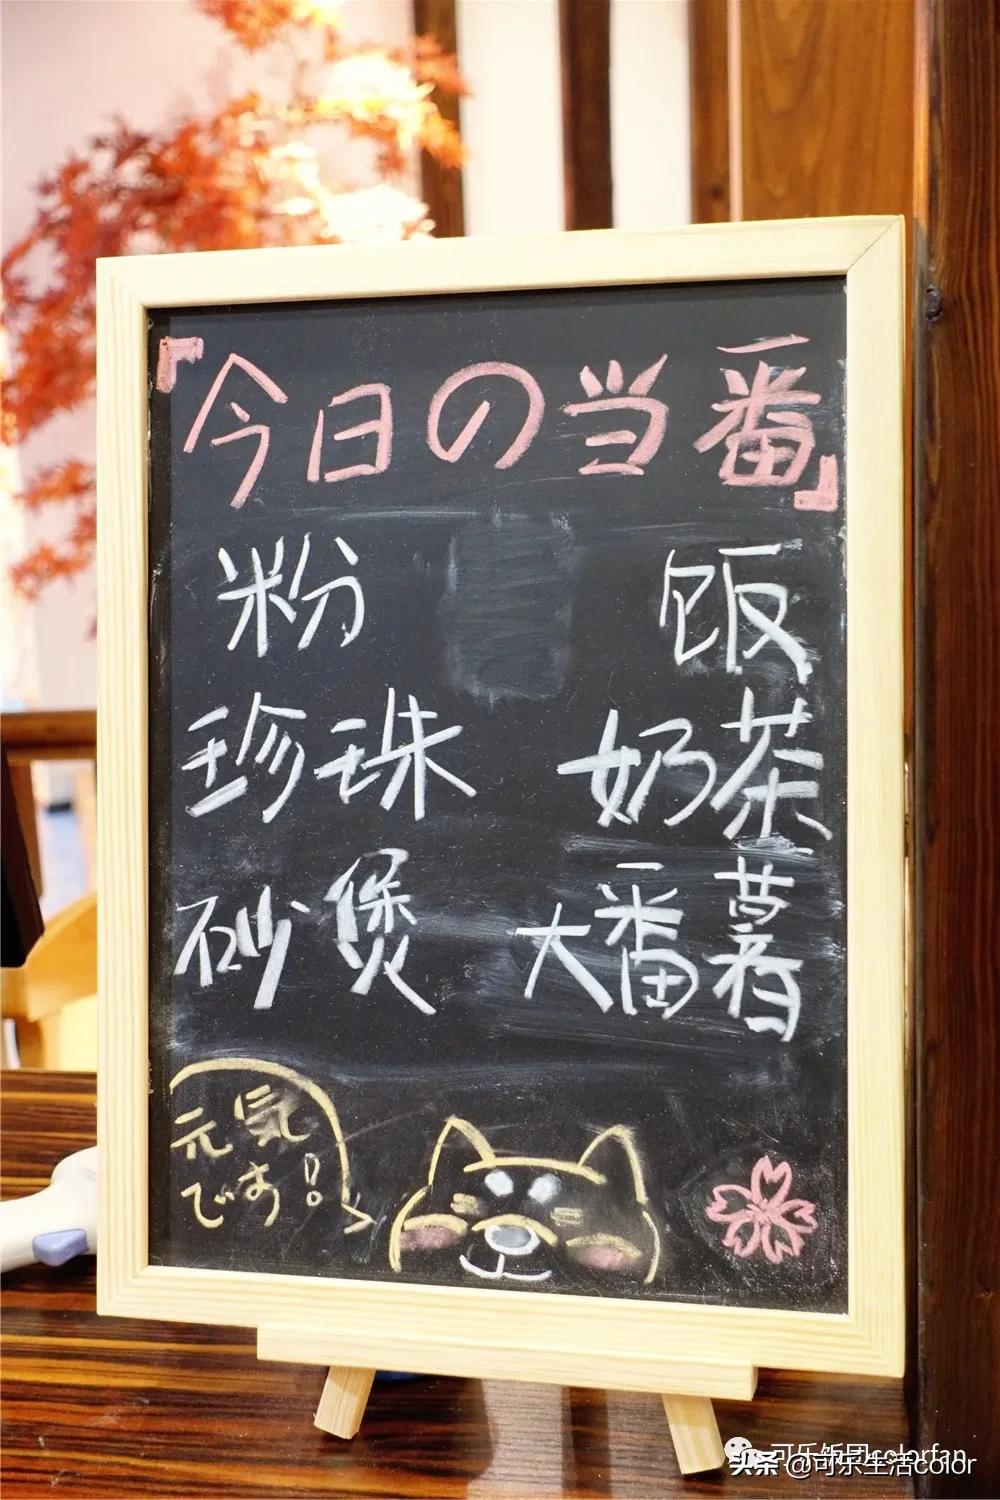 『今日の当番』
粉 饭
珍珠 奶茶
砂煲 大番薯
元気
です!!
可乐饭团colorfan
头条 @可乐生活color